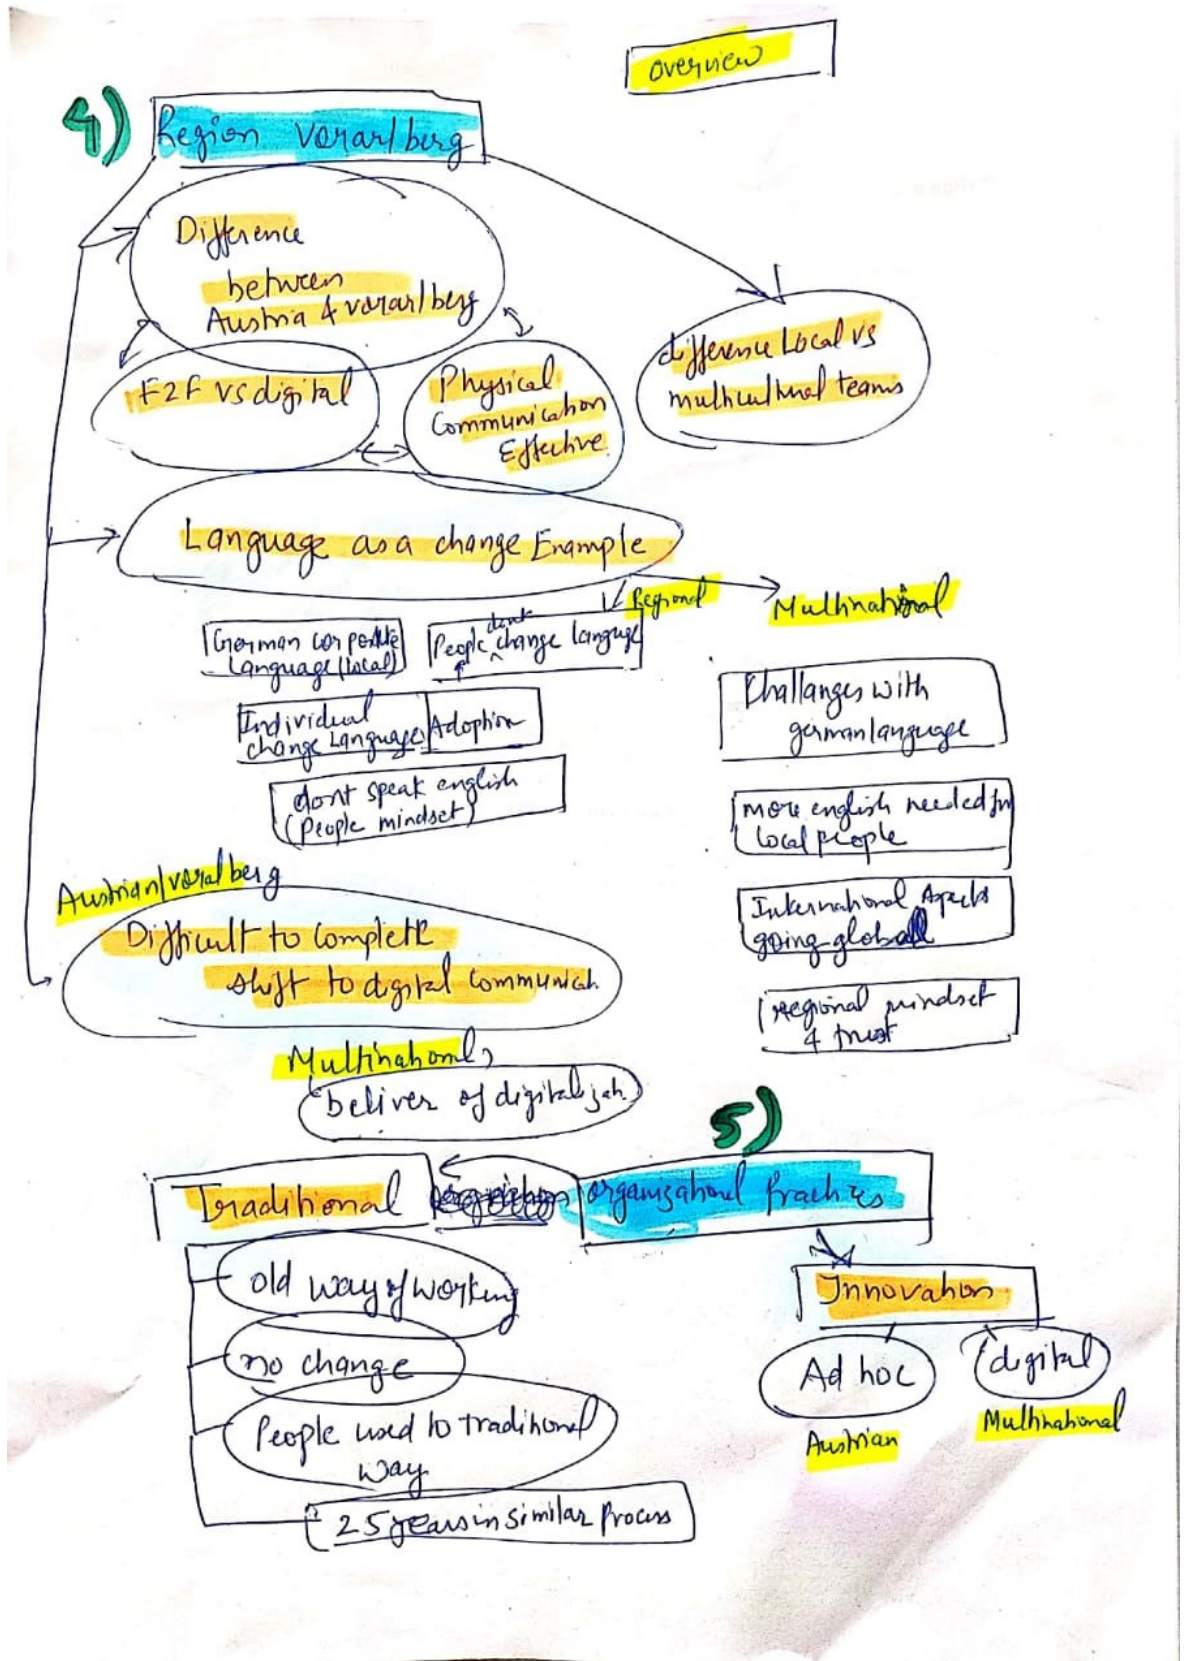 overview
4) Region Vorarlberg
Difference
between
Austria & vorarlberg
F2F vs digital
Physical
Communication
Effective
difference Local vs
multicultural teams
Language as a change Example
Regional
Multinational
German corporate
Language (local)
People dont change language
Individual
change Languages
Adoption
dont speak english
(People mindset)
Challanges with
german language
more english needed for
local people
International Aspects
going global
regional mindset
& trust
Austrian/voralberg
Difficult to complete
shift to digital communicah.
Multinational,
beliver of digitalizah.
5)
Traditional
organizational Practices
old way of working
no change
People used to traditional
way
25 years in similar Process
Innovation
Ad hoc
digital
Austrian
Multinational